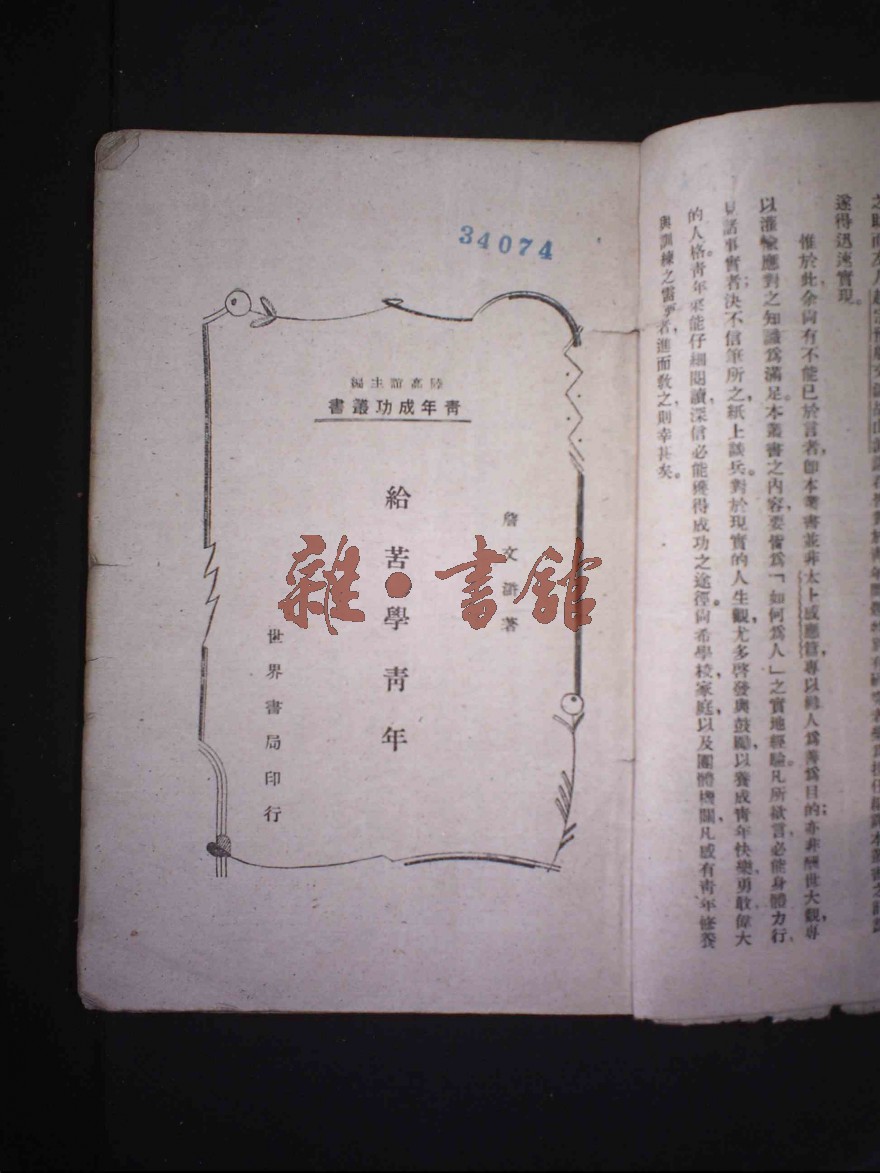 遂得迅速實現。
惟於此余尙有不能已於言者，卽本叢書並非太上感應篇，專以勸人爲善爲目的；亦非酬世大觀，專
以灌輸應對之知識爲滿足。本叢書之內容，要皆爲「如何爲人」之實地經驗。凡所欲言，必能身體力行，
見諸事實者；決不信筆所之，紙上談兵。對於現實的人生觀，尤多啓發與鼓勵，以養成青年快樂勇敢偉大
的人格。青年果能仔細閱讀，深信必能獲得成功之途徑。尙希學校，家庭，以及團體機關，凡感有靑年修養
與訓練之需要者，進而敎之，則幸甚矣。
34074
陸高誼主編
靑年成功叢書
詹文滸著
給苦學靑年
世界書局印行
雜·書館